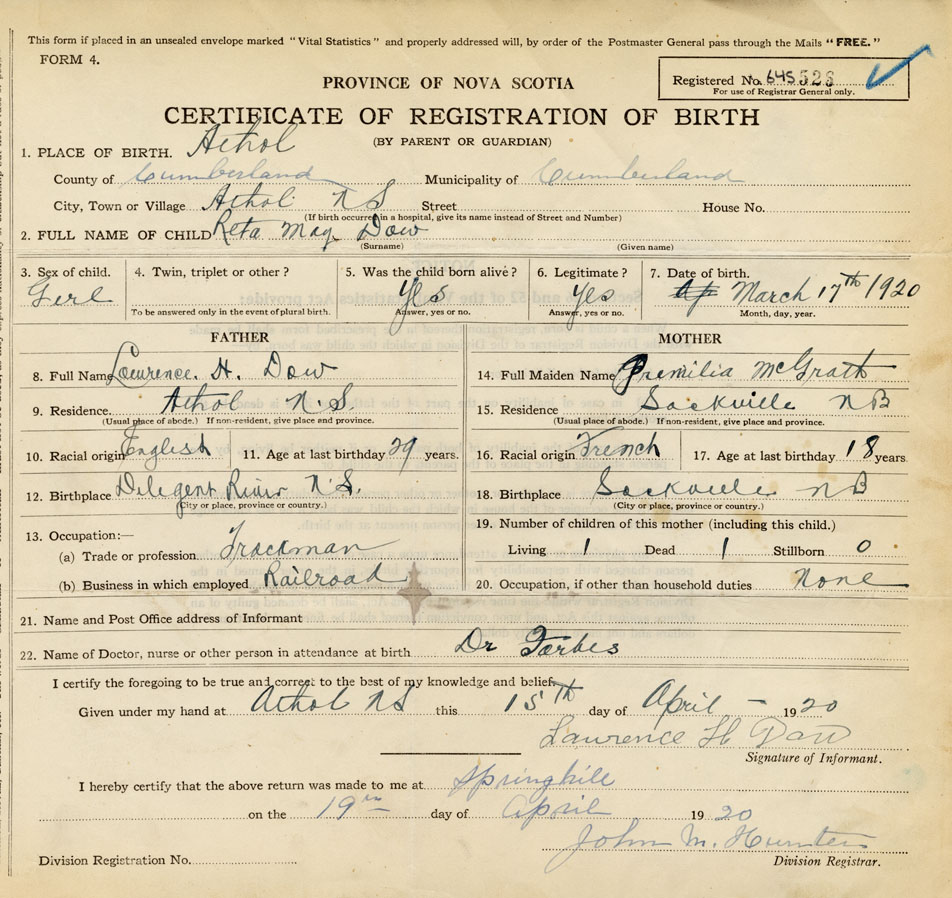 This form if placed in an unsealed envelope marked "Vital Statistics" and properly addressed will, by order of the Postmaster General pass through the Mails "FREE."
FORM 4.
Registered No. 645528
For use of Registrar General only.
PROVINCE OF NOVA SCOTIA
CERTIFICATE OF REGISTRATION OF BIRTH
(BY PARENT OR GUARDIAN)
1. PLACE OF BIRTH. Athol
County of Cumberland Municipality of Cumberland
City, Town or Village Athol N S Street House No.
(If birth occurred in a hospital, give its name instead of Street and Number)
2. FULL NAME OF CHILD Reta May Dow
(Surname) (Given name)
3. Sex of child. 4. Twin, triplet or other? 5. Was the child born alive? 6. Legitimate? 7. Date of birth.
Girl Yes Yes March 17th 1920
To be answered only in the event of plural birth. Answer, yes or no. Answer, yes or no. Month, day, year.
FATHER MOTHER
8. Full Name Lawrence. H. Dow 14. Full Maiden Name Premilia McGrath
9. Residence. Athol N.S. 15. Residence Sackville N B
(Usual place of abode.) If non-resident, give place and province. (Usual place of abode.) If non-resident, give place and province.
10. Racial origin English 11. Age at last birthday 29 years. 16. Racial origin French 17. Age at last birthday 18 years.
12. Birthplace Diligent River N.S. 18. Birthplace Sackville N B
(City or place, province or country.) (City or place, province or country.)
13. Occupation:— 19. Number of children of this mother (including this child.)
(a) Trade or profession Trackman Living 1 Dead 1 Stillborn 0
(b) Business in which employed Railroad 20. Occupation, if other than household duties None
21. Name and Post Office address of Informant
22. Name of Doctor, nurse or other person in attendance at birth Dr Forbes
I certify the foregoing to be true and correct to the best of my knowledge and belief.
Given under my hand at Athol NS this 15th day of April - 1920
Lawrence H Dow
Signature of Informant.
I hereby certify that the above return was made to me at Springhill
on the 19th day of April 1920
John M. Hunter
Division Registration No. Division Registrar.